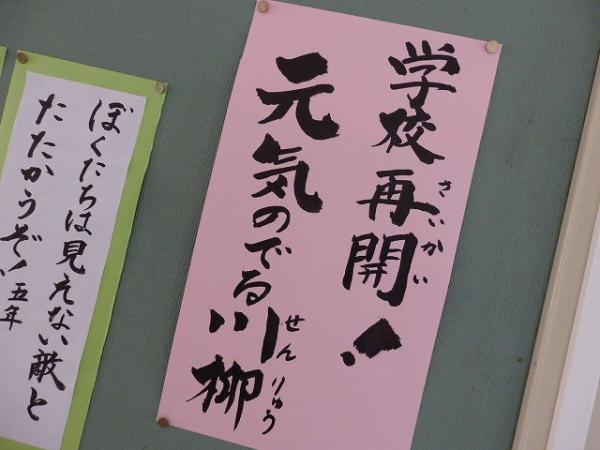 学校再開！
さいかい
元気のでる川柳
せんりゅう
ぼくたちは見えない敵と
たたかうぞ！五年